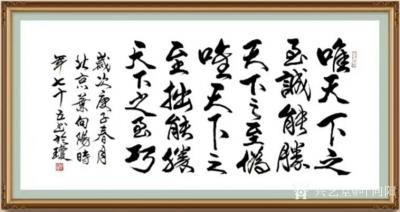 唯天下之
至誠能勝
天下之至偽
唯天下之
至拙能勝
天下之至巧
歲次庚子春月
北京葉向陽時
年七十五书於瓊